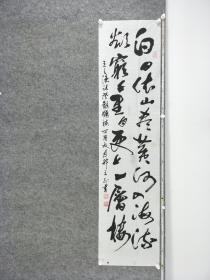 白日依山盡黃河入海流
欲窮千里目更上一層樓
王之渙詩登鸛